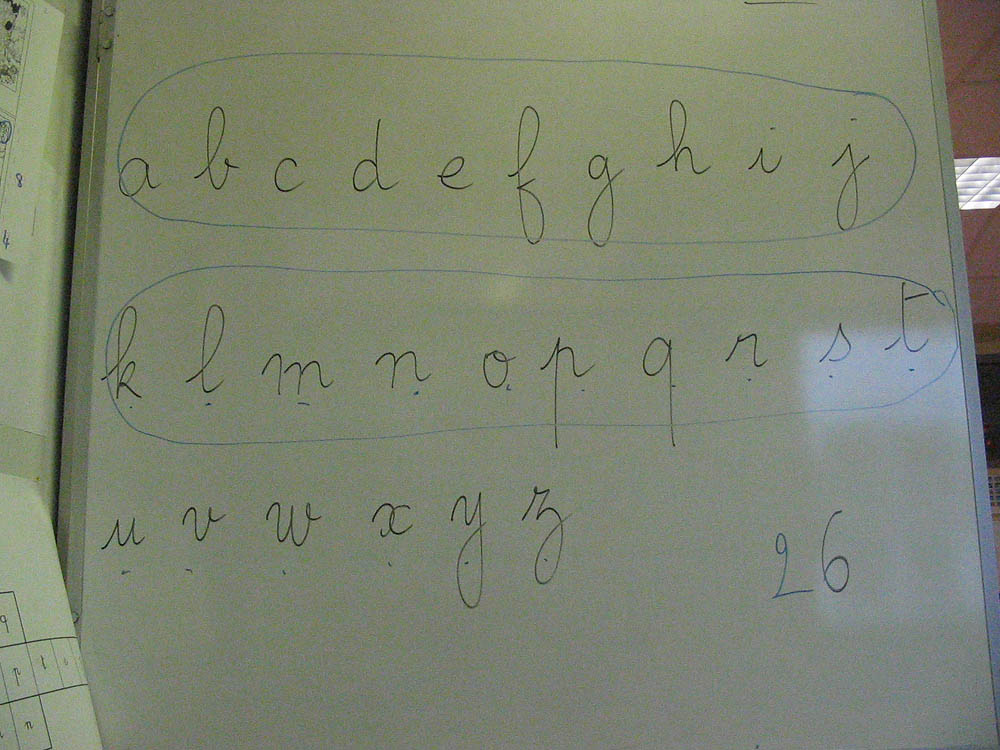 a b c d e f g h i j
k l m n o p q r s t
u v w x y z
26
8
4
q
p t
n